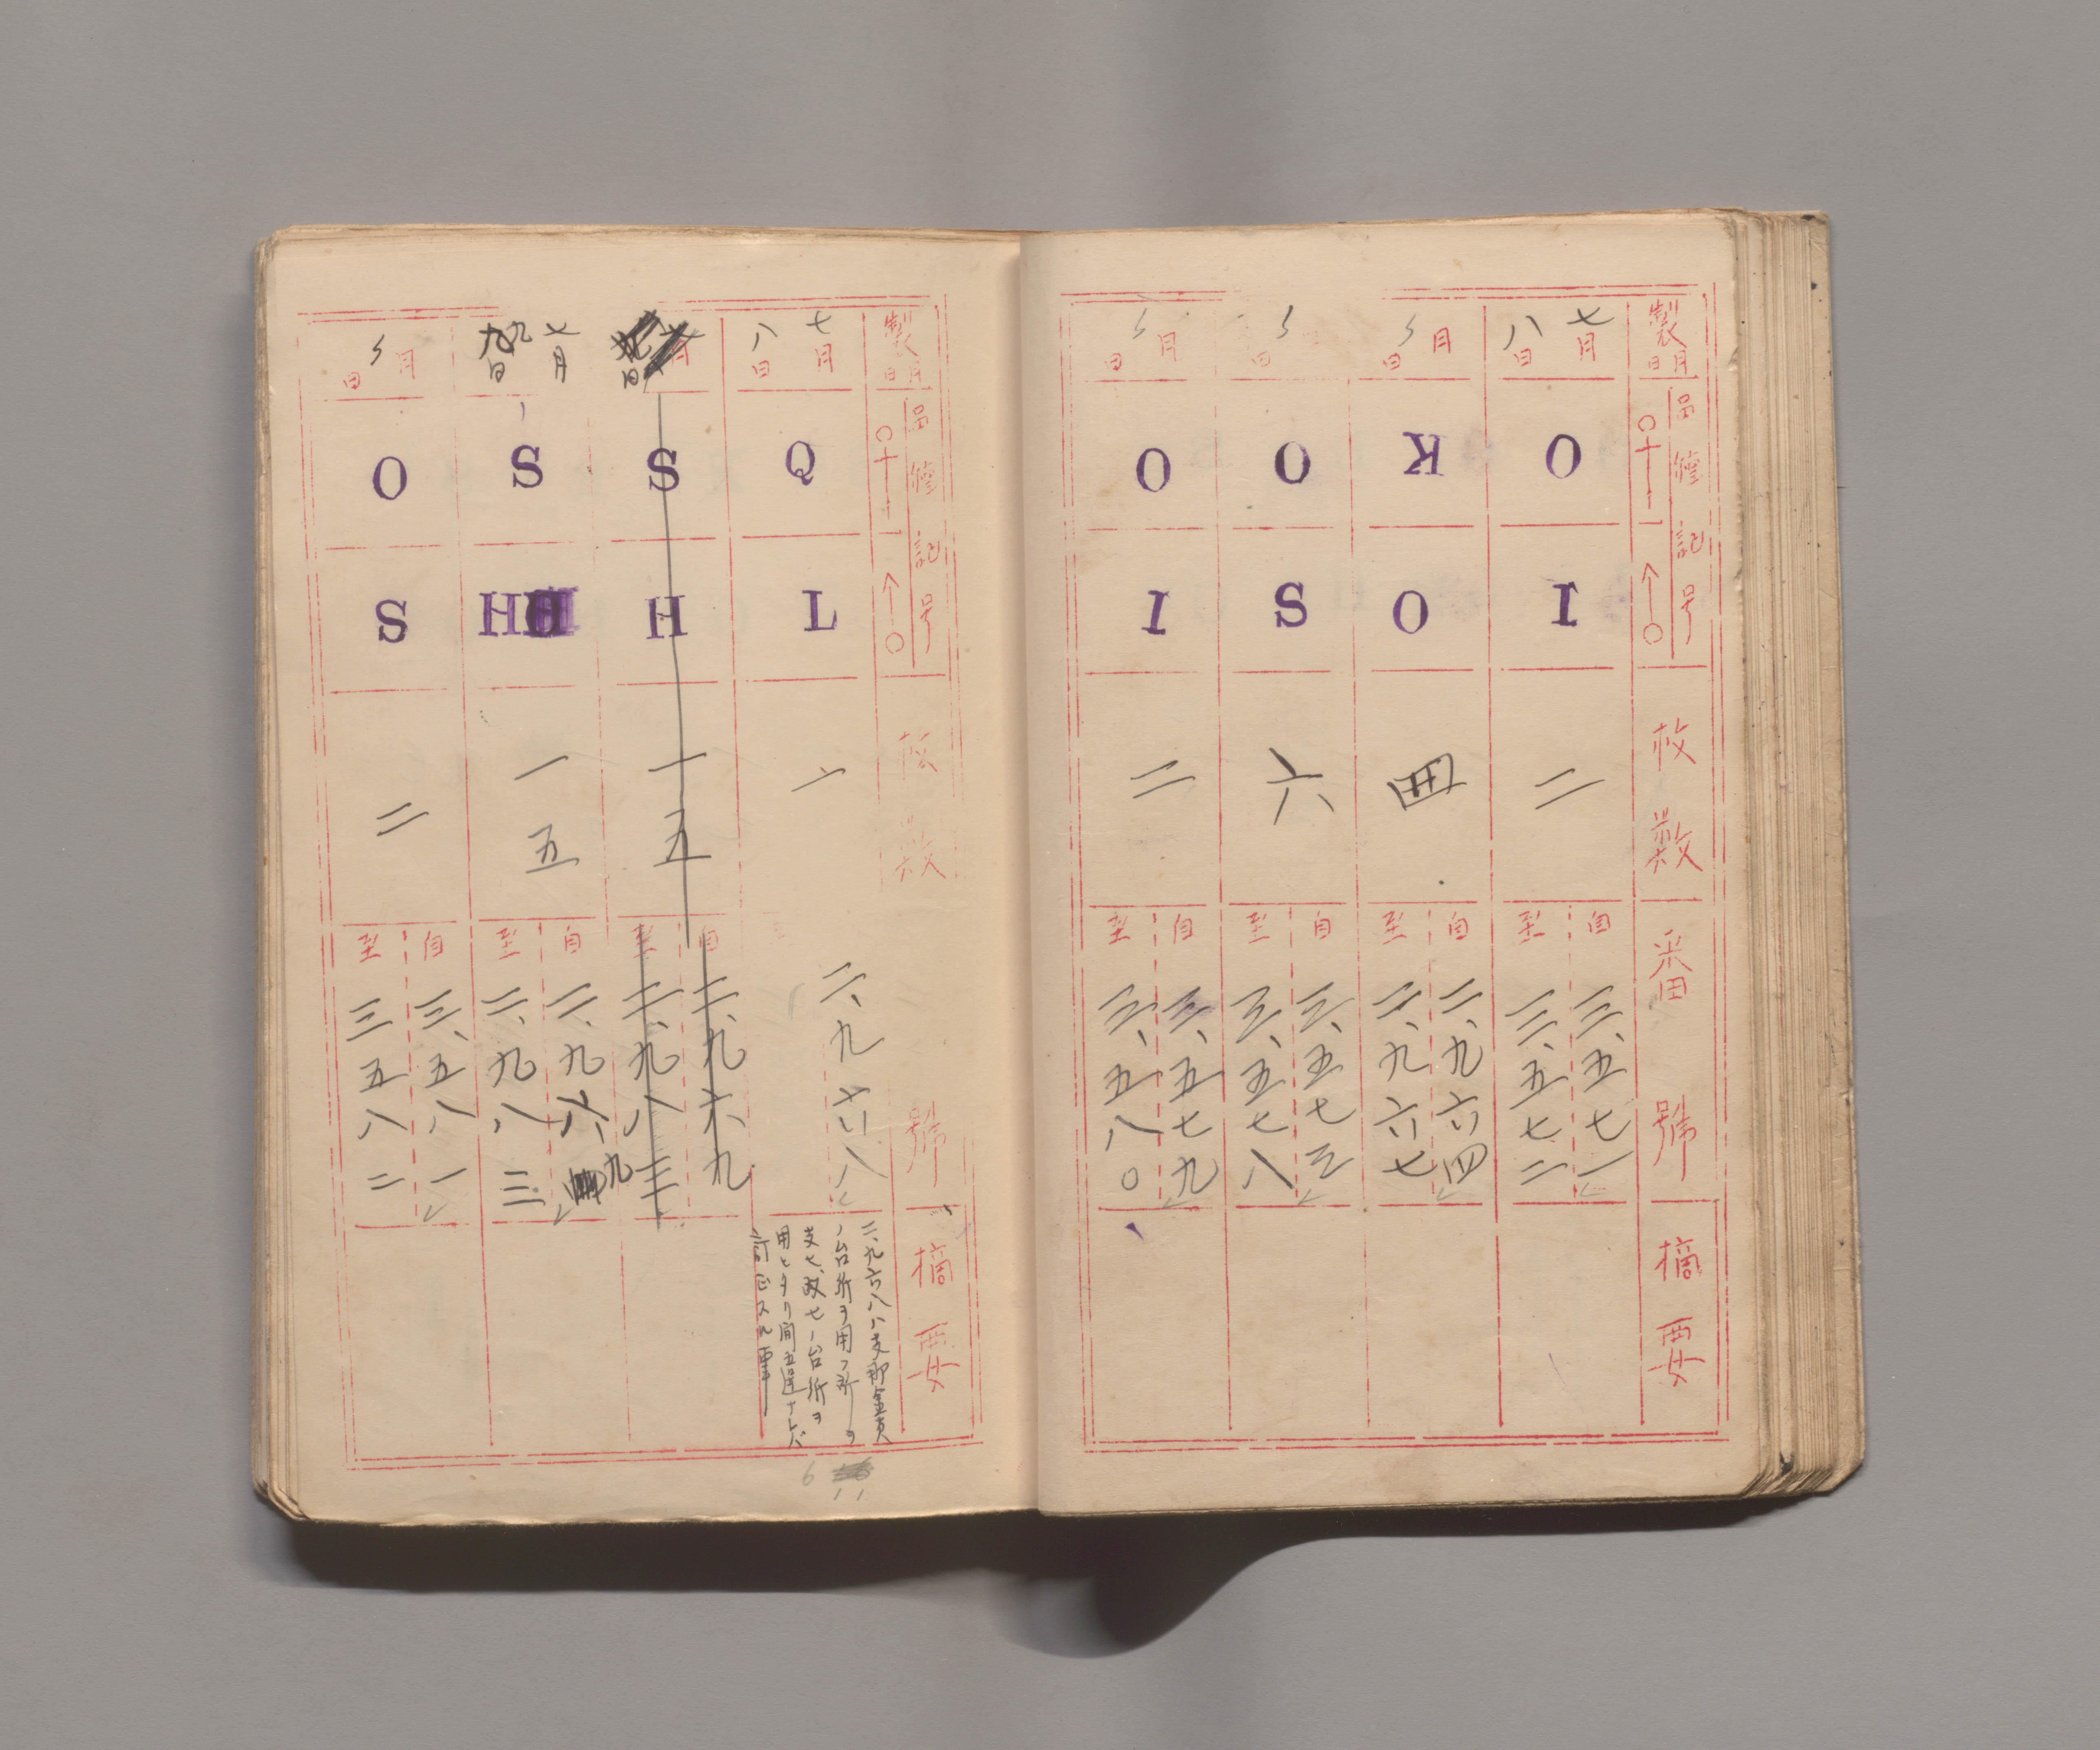 製月日
品種記号
枚数
番號
摘要
七月八日
O
I
二
自 三、五七一
至 三、五七二
〃月日
K
O
四
自 二、九六四
至 二、九六七
〃日
O
S
六
自 三、五七三
至 三、五七八
〃月日
O
I
二
自 三、五七九
至 三、五八〇
製月日
品種記号
枚数
番號
摘要
七月八日
Q
L
一
二、九六八
二、九六八ハ支那全支
ノ台紙ヲ用フ所ヲ
支七、政七ノ台紙ヲ
用ヒタリ間違ナレバ
訂正スル事
月日
S
H
一五
自 二、九六九
至 二、九八三
七月九日
S
H
一五
自 二、九六九
至 二、九八三
〃月日
O
S
二
自 三、五八一
至 三五八二
6